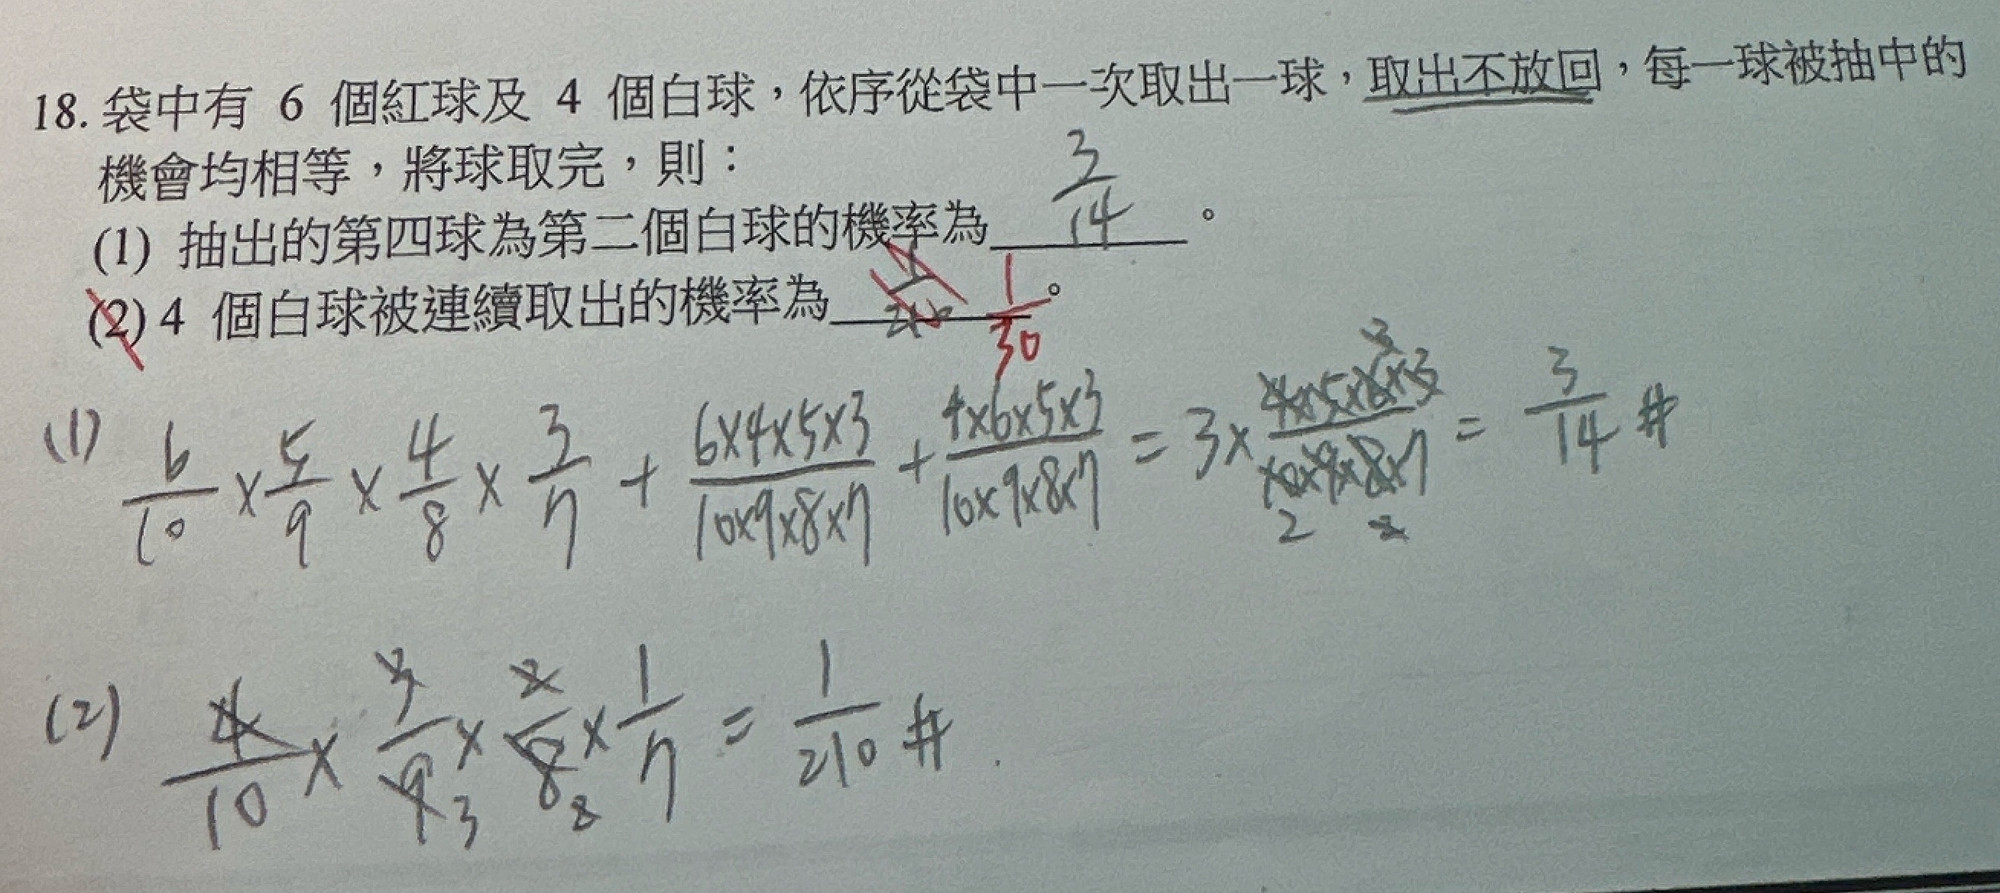 18. 袋中有 6 個紅球及 4 個白球，依序從袋中一次取出一球，取出不放回，每一球被抽中的
機會均相等，將球取完，則：
(1) 抽出的第四球為第二個白球的機率為 3/14 。
(2) 4 個白球被連續取出的機率為 1/210 1/30 。
(1) 6/10 × 5/9 × 4/8 × 3/7 + 6×4×5×3/10×9×8×7 + 4×6×5×3/10×9×8×7 = 3× 4×5×6×3/10×9×8×7 = 3/14 #
(2) 4/10 × 3/9 × 2/8 × 1/7 = 1/210 #